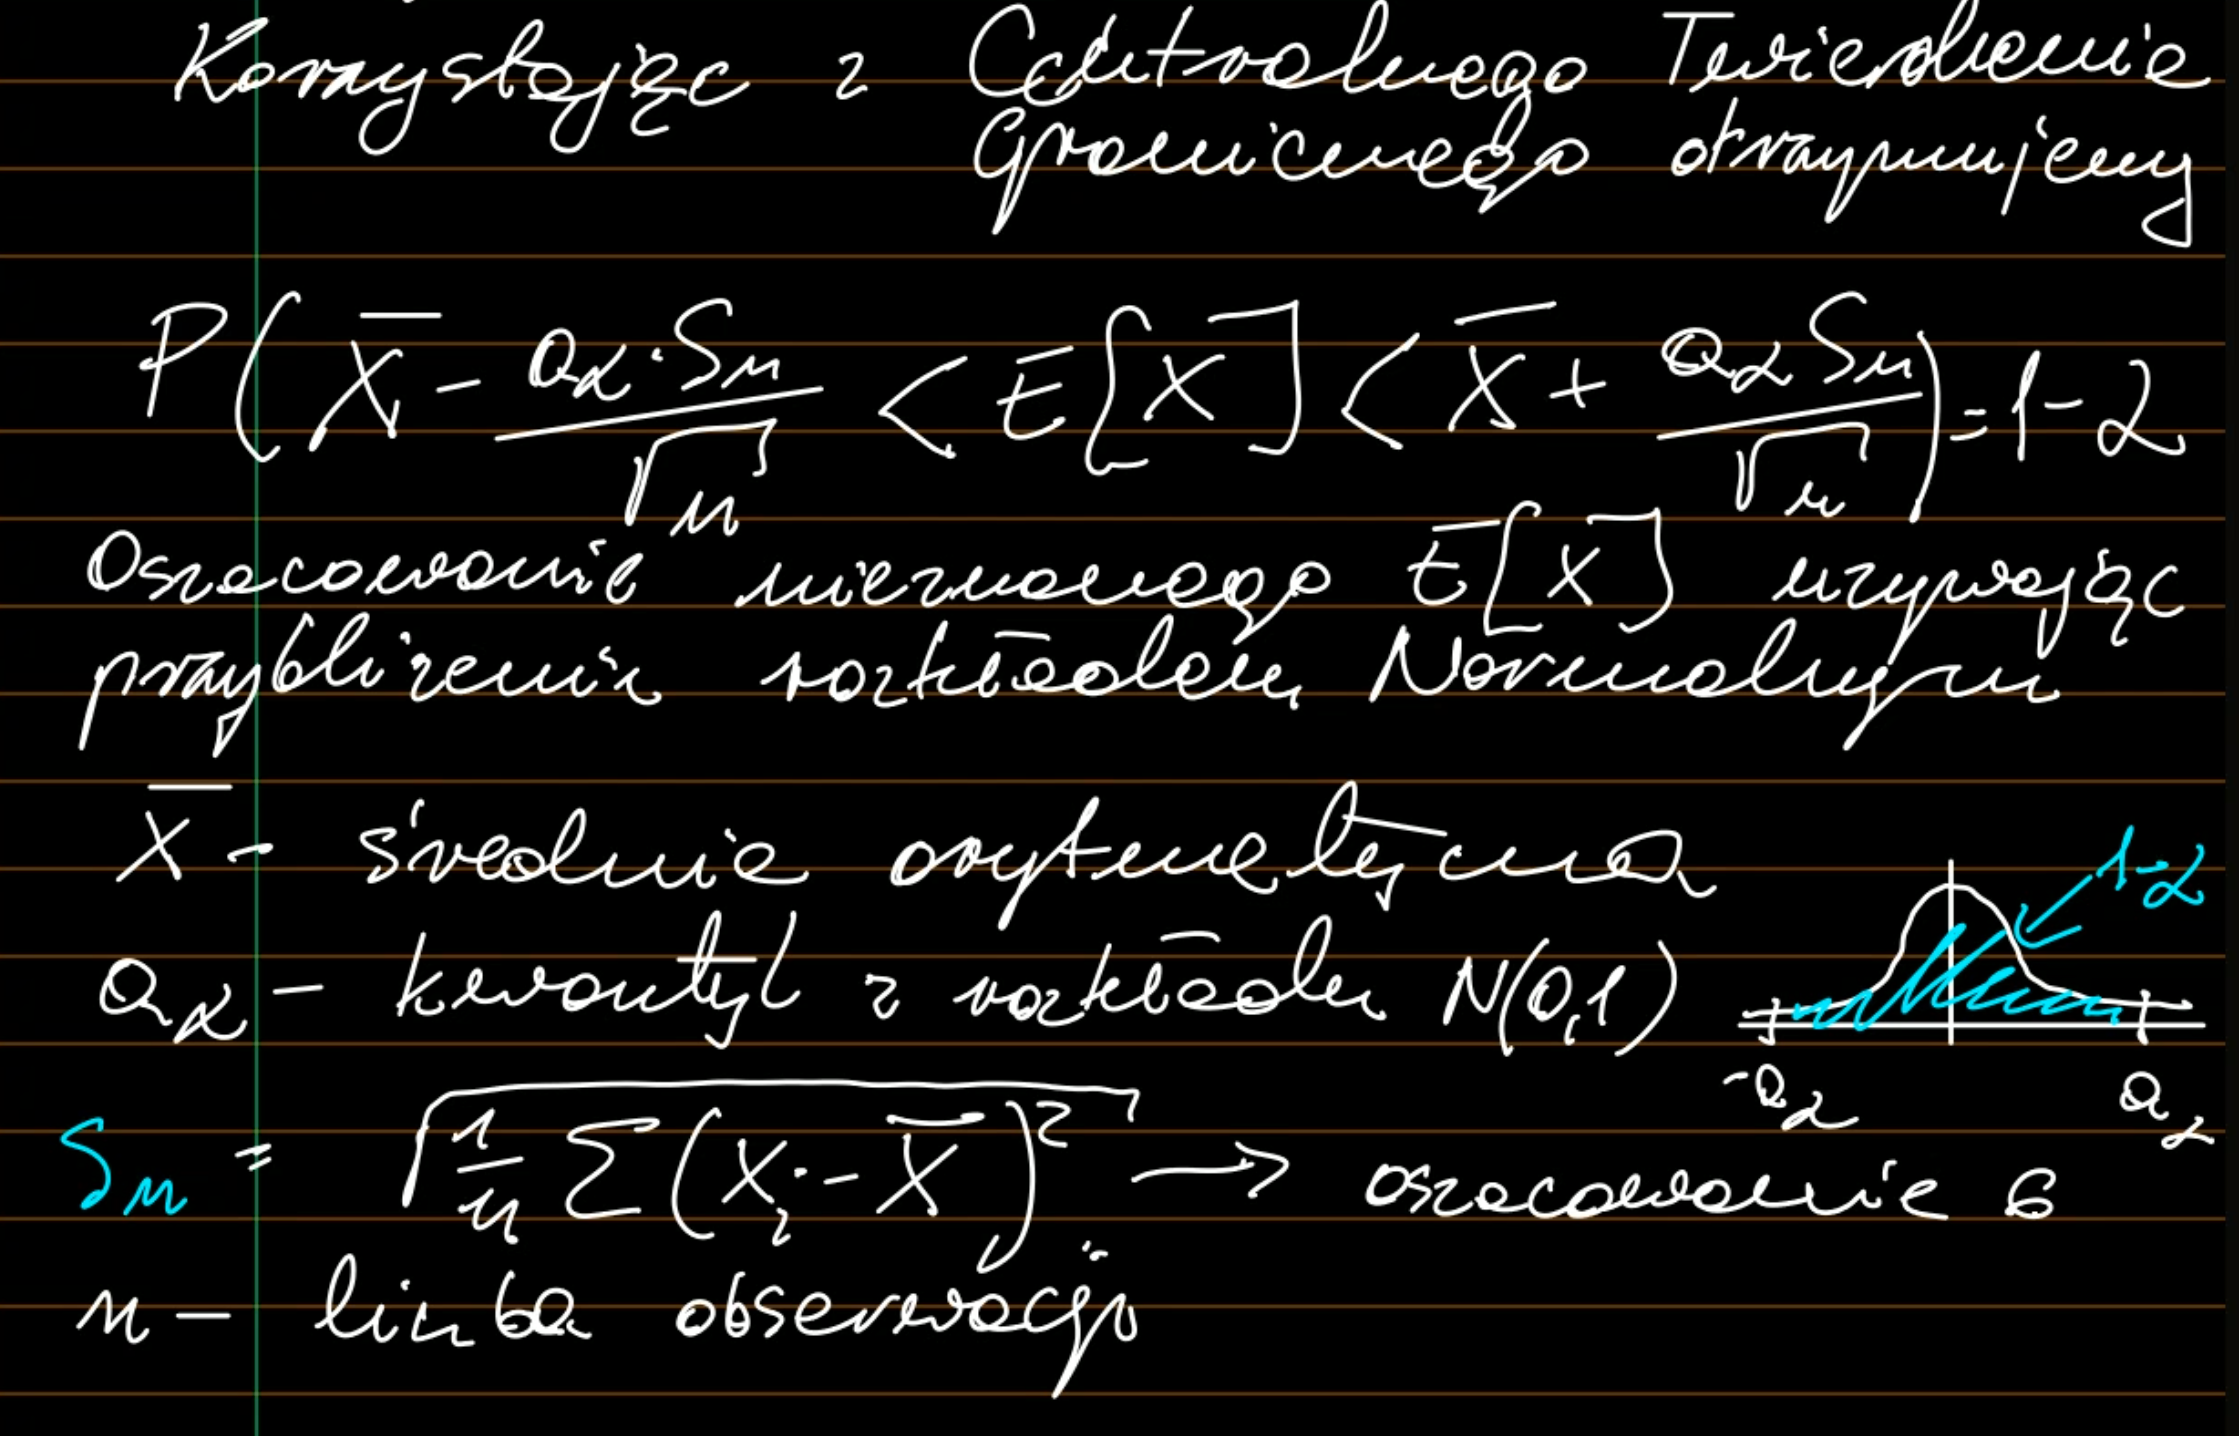 Korzystając z Centralnego Twierdzenia
Granicznego otrzymujemy
P( X̄ - aα·Sn/√n < E[X] < X̄ + aα Sn/√n ) = 1-α
Oszacowanie nieznanego E[X] używając
przybliżenia rozkładem Normalnym
X̄ - średnia arytmetyczna
1-α
aα - kwantyl z rozkładu N(0,1)
-aα aα
Sn = √(1/n Σ(Xi - X̄)²) → oszacowanie σ
n - liczba obserwacji